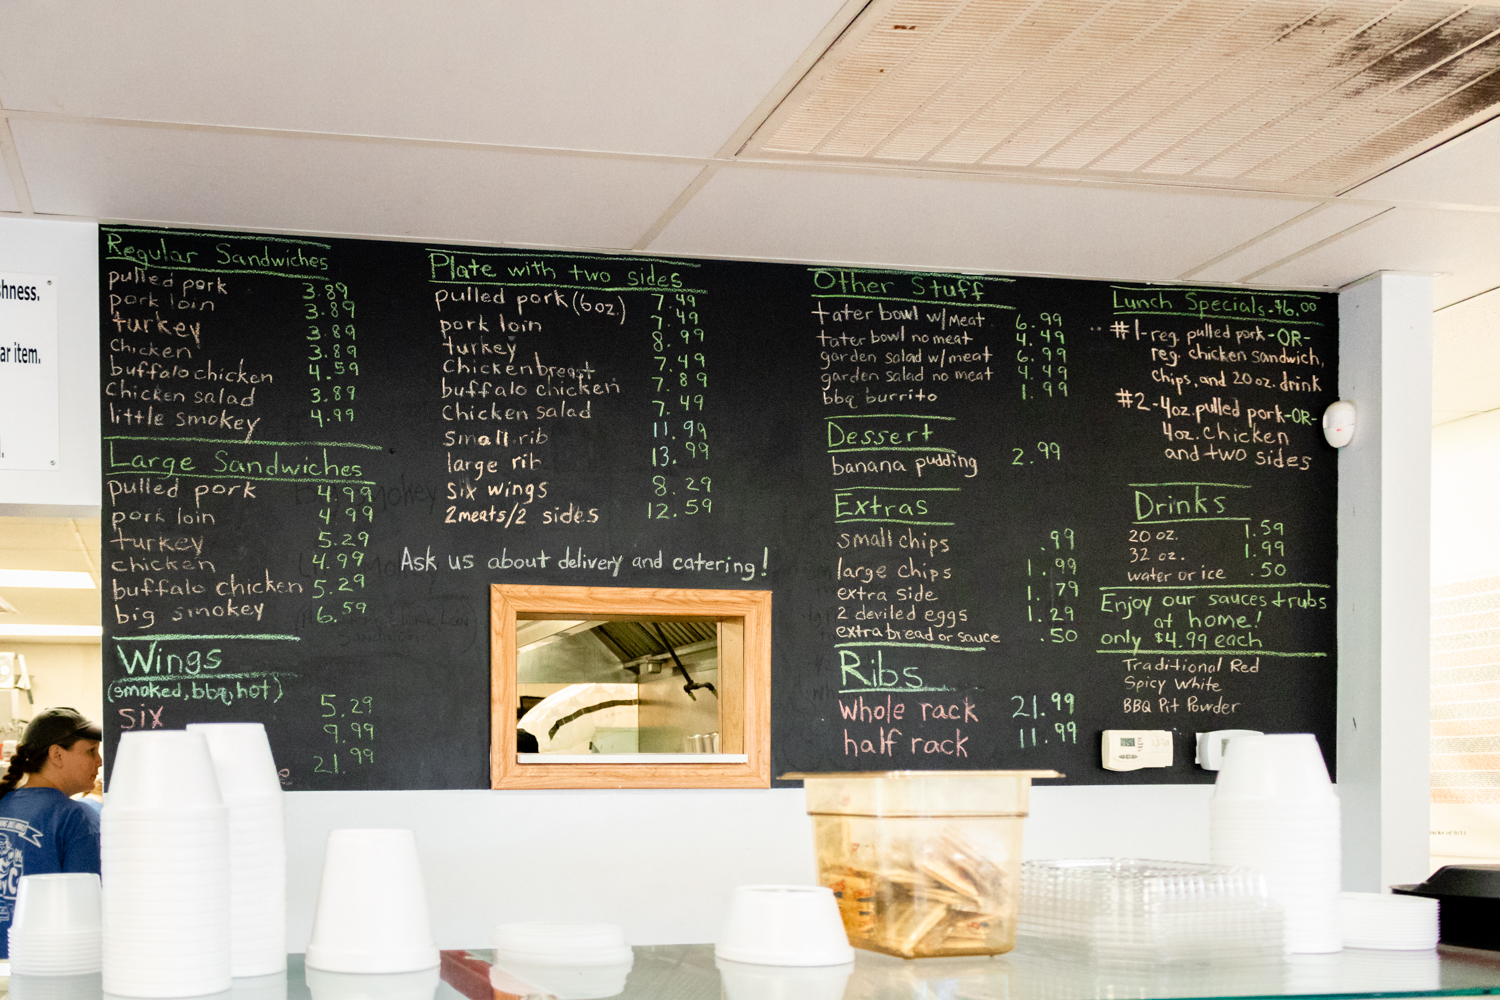 shness.
ar item.
Regular Sandwiches
pulled pork 3.89
pork loin 3.89
turkey 3.89
chicken 3.89
buffalo chicken 4.59
Chicken salad 3.89
little smokey 4.99
Large Sandwiches
pulled pork 4.99
pork loin 4.99
turkey 5.29
chicken 4.99
buffalo chicken 5.29
big smokey 6.59
Wings
(smoked, bbq, hot)
six 5.29
9.99
21.99
Plate with two sides
pulled pork (6oz.) 7.49
pork loin 7.49
turkey 8.99
Chicken breast 7.49
buffalo chicken 7.89
Chicken salad 7.49
small rib 11.99
large rib 13.99
six wings 8.29
2meats/2 sides 12.59
Ask us about delivery and catering!
Other Stuff
tater bowl w/meat 6.99
tater bowl no meat 4.49
garden salad w/meat 6.99
garden salad no meat 4.49
bbq burrito 1.99
Dessert
banana pudding 2.99
Extras
small chips .99
large chips 1.99
extra side 1.79
2 deviled eggs 1.29
extra bread or sauce .50
Ribs
whole rack 21.99
half rack 11.99
Lunch Specials-$6.00
#1-reg. pulled pork-OR-
reg. chicken sandwich,
chips, and 20oz. drink
#2-4oz. pulled pork-OR-
4oz. chicken
and two sides
Drinks
20 oz. 1.59
32 oz. 1.99
water or ice .50
Enjoy our sauces + rubs
at home!
only $4.99 each
Traditional Red
Spicy White
BBQ Pit Powder